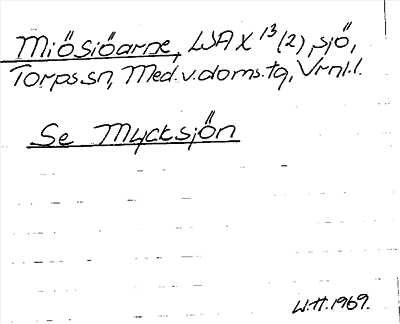 Miösiöarne, LSA X 13 (2), sjö,
Torps.sn, Med.v.doms.tg, Vrnl.l.
Se Mycksjön
W.H.1969.